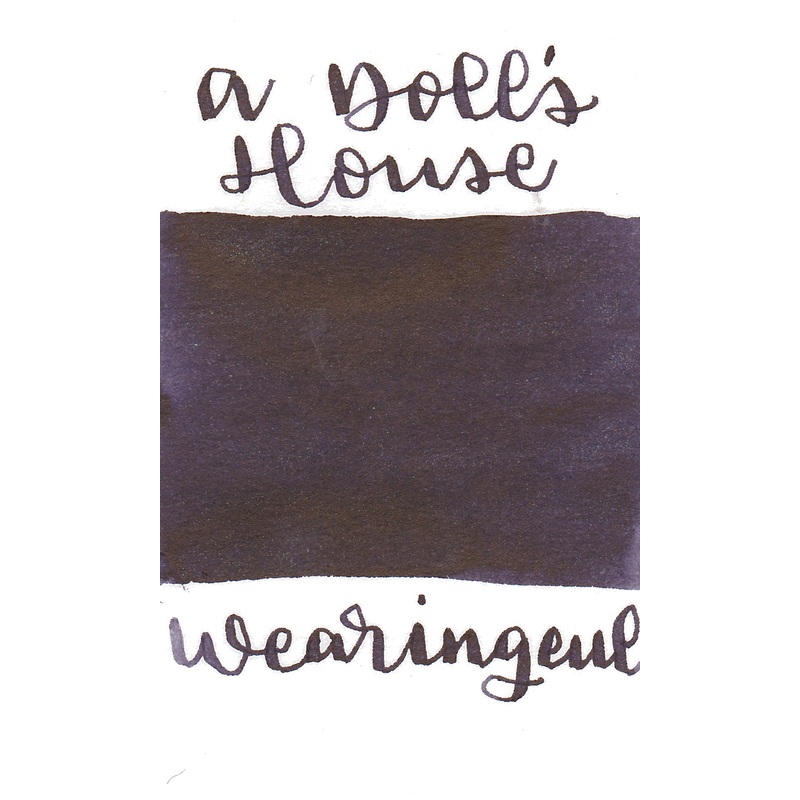 a Doll's
House
wearingeul